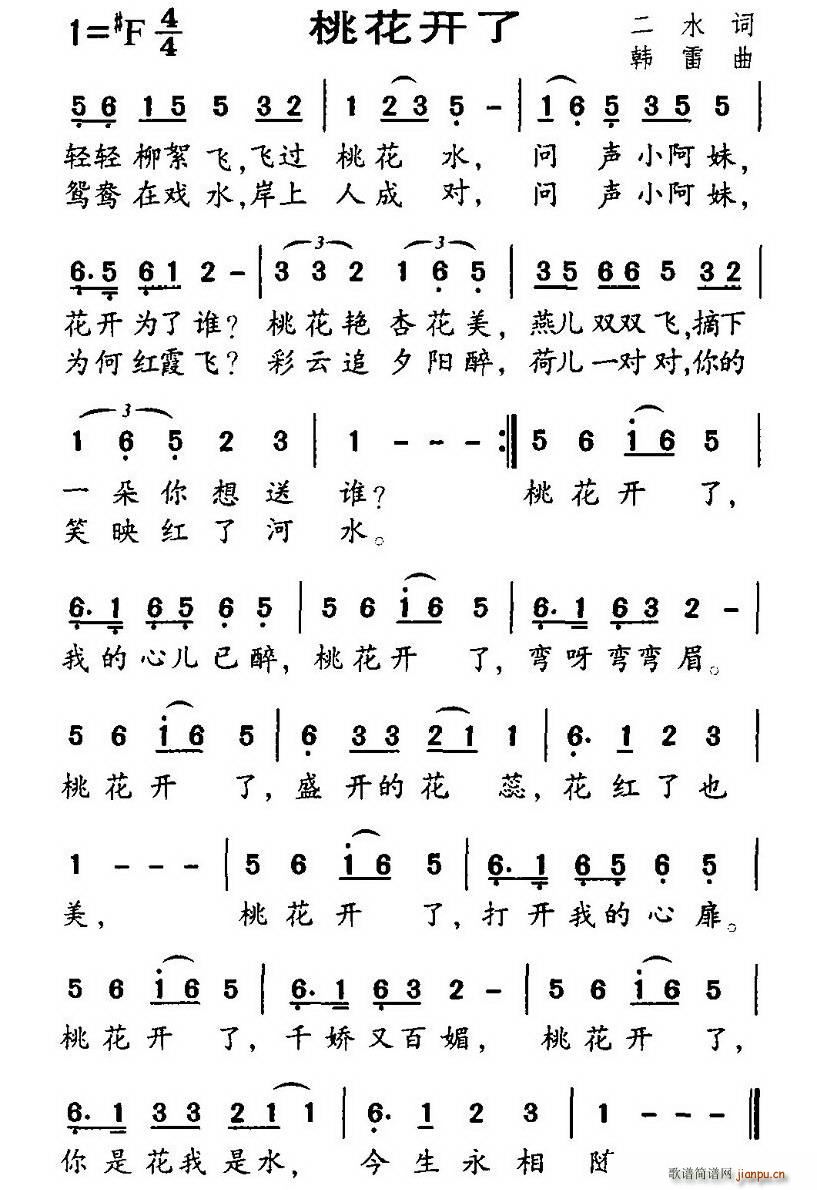 1=#F 4/4 桃花开了 二水词
韩雷曲
5 6 1 5 5 3 2 | 1 2 3 5 - | 1 6 5 3 5 5 |
轻轻柳絮飞,飞过桃花水, 问声小阿妹,
鸳鸯在戏水,岸上人成对, 问声小阿妹,
6. 5 6 1 2 - | 3 3 2 1 6 5 | 3 5 6 6 5 3 2 |
花开为了谁? 桃花艳杏花美, 燕儿双双飞,摘下
为何红霞飞? 彩云追夕阳醉, 荷儿一对对,你的
1 6 5 2 3 | 1 - - - :| 5 6 1 6 5 |
一朵你想送谁? 桃花开了,
笑映红了河水。
6. 1 6 5 6 5 | 5 6 1 6 5 | 6. 1 6 3 2 - |
我的心儿已醉, 桃花开了, 弯呀弯弯眉。
5 6 1 6 5 | 6 3 3 2 1 1 | 6. 1 2 3 |
桃花开了, 盛开的花蕊, 花红了也
1 - - - | 5 6 1 6 5 | 6. 1 6 5 6 5 |
美, 桃花开了, 打开我的心扉。
5 6 1 6 5 | 6. 1 6 3 2 - | 5 6 1 6 5 |
桃花开了, 千娇又百媚, 桃花开了,
6. 1 3 3 2 1 1 | 6. 1 2 3 | 1 - - - |
你是花我是水, 今生永相随
歌谱简谱网 jianpu.cn